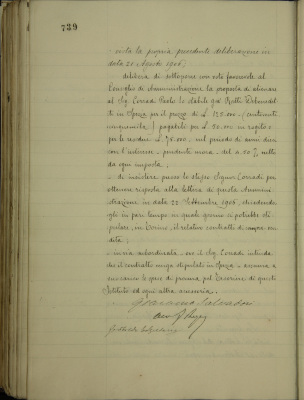 739
- vista la propria precedente deliberazione in
data 21 Agosto 1906;
delibera di sottoporre con voto favorevole al
Consiglio di Amministrazione la proposta di alienare
al Sig. Corradi Paolo lo stabile già Ratti Debenedet
ti in Spezia pel prezzo di £ 125.000 (
) pagabile per £ 50.000 in rogito e
per le residue £ 75.000, nel periodo di anni dieci
con l'interesse, pendente mora, del 4.50 % netto
da ogni imposta;
- di insistere presso lo stesso Signor Corradi per
ottenere risposta alla lettera di questa Ammini
strazione in data 22 Settembre 1906, chiedendo
gli in pari tempo in quale giorno si potrebbe sti
polare, in Torino, il relativo contratto di compra ven
dita;
- in via subordinata, ove il Sig. Corradi intenda
che il contratto venga stipulato in Spezia,
le spese di per l'
Istituto ed ogni altra accessoria.
Giacomo Salvadori